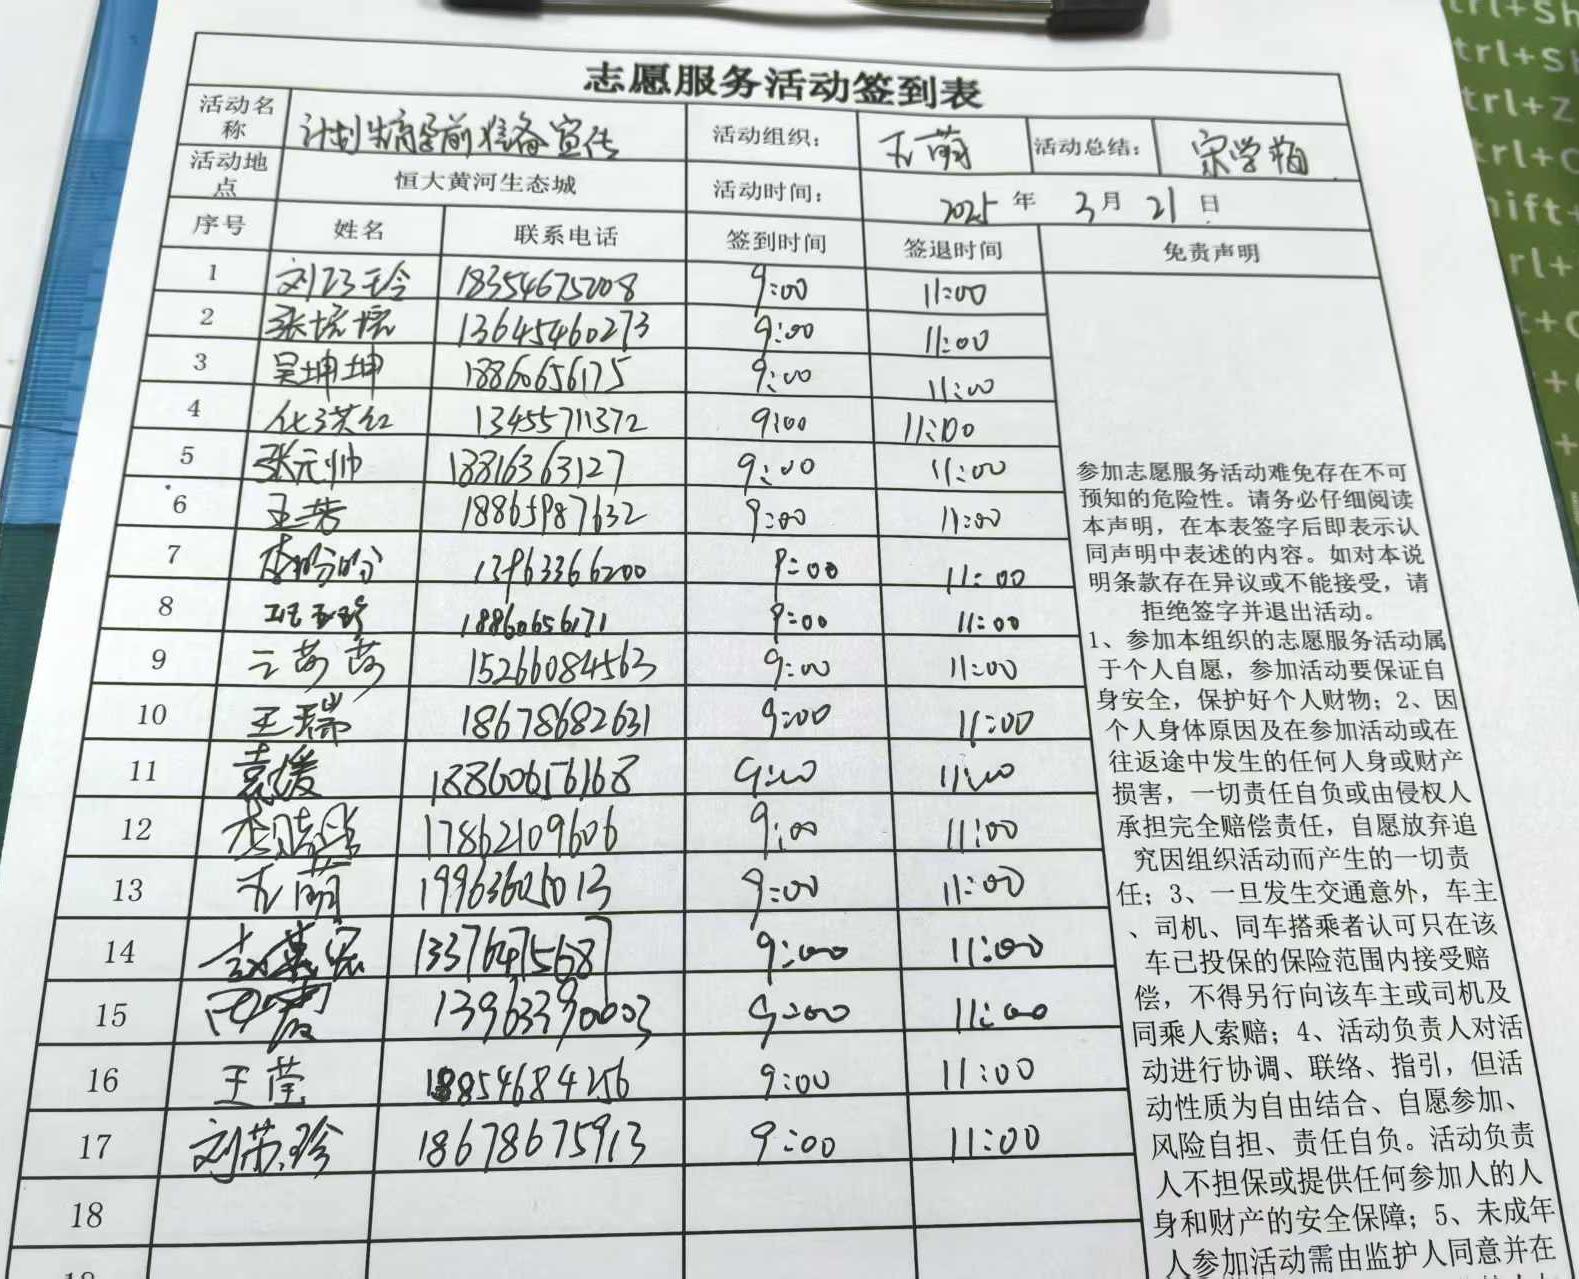 志愿服务活动签到表
活动名称 计划生育孕前准备宣传 活动组织： 王萌 活动总结： 宗学梅
活动地点 恒大黄河生态城 活动时间： 2025 年 3月 21 日
序号 姓名 联系电话 签到时间 签退时间 免责声明
1 18354675208 9:00 11:00
2 13645460273 9:00 11:00
3 吴坤坤 18860656175 9:00 11:00
4 13455711372 9:00 11:00
5 张元帅 18816363127 9:00 11:00
6 王芳 18865987632 9:00 11:00
7 李盼盼 13963366200 9:00 11:00
8 18860656171 9:00 11:00
9 15266084563 9:00 11:00
10 王瑞 18678682631 9:00 11:00
11 袁媛 18860656168 9:00 11:00
12 17862109606 9:00 11:00
13 王萌 19963605013 9:00 11:00
14 9:00 11:00
15 9:00 11:00
16 王莹 18854684256 9:00 11:00
17 18678675913 9:00 11:00
18
参加志愿服务活动难免存在不可
预知的危险性。请务必仔细阅读
本声明，在本表签字后即表示认
同声明中表述的内容。如对本说
明条款存在异议或不能接受，请
拒绝签字并退出活动。
1、参加本组织的志愿服务活动属
于个人自愿，参加活动要保证自
身安全，保护好个人财物；2、因
个人身体原因及在参加活动或在
往返途中发生的任何人身或财产
损害，一切责任自负或由侵权人
承担完全赔偿责任，自愿放弃追
究因组织活动而产生的一切责
任；3、一旦发生交通意外，车主
、司机、同车搭乘者认可只在该
车已投保的保险范围内接受赔
偿，不得另行向该车主或司机及
同乘人索赔；4、活动负责人对活
动进行协调、联络、指引，但活
动性质为自由结合、自愿参加、
风险自担、责任自负。活动负责
人不担保或提供任何参加人的人
身和财产的安全保障；5、未成年
人参加活动需由监护人同意并在